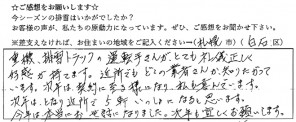 ☆ご感想をお願いします☆
今シーズンの排雪はいかがでしたか？
お客様の声が、私たちの原動力になっています。ぜひ、ご感想をお聞かせ下さい。
※差支えなければ、お住まいの地域をご記入ください→（札幌 市）（白石 区）
重機、排雪トラックの運転手さんが、とても礼儀正しく
好感が持てます。近所でもどこの業者さんか、知りたがって
います。次年は契約に至る様になり、私も喜んでいます。
次年は、となり近所で5軒いっしょになると思います。
今年は本当にお世話になりました。次年も宜しくお願いします。